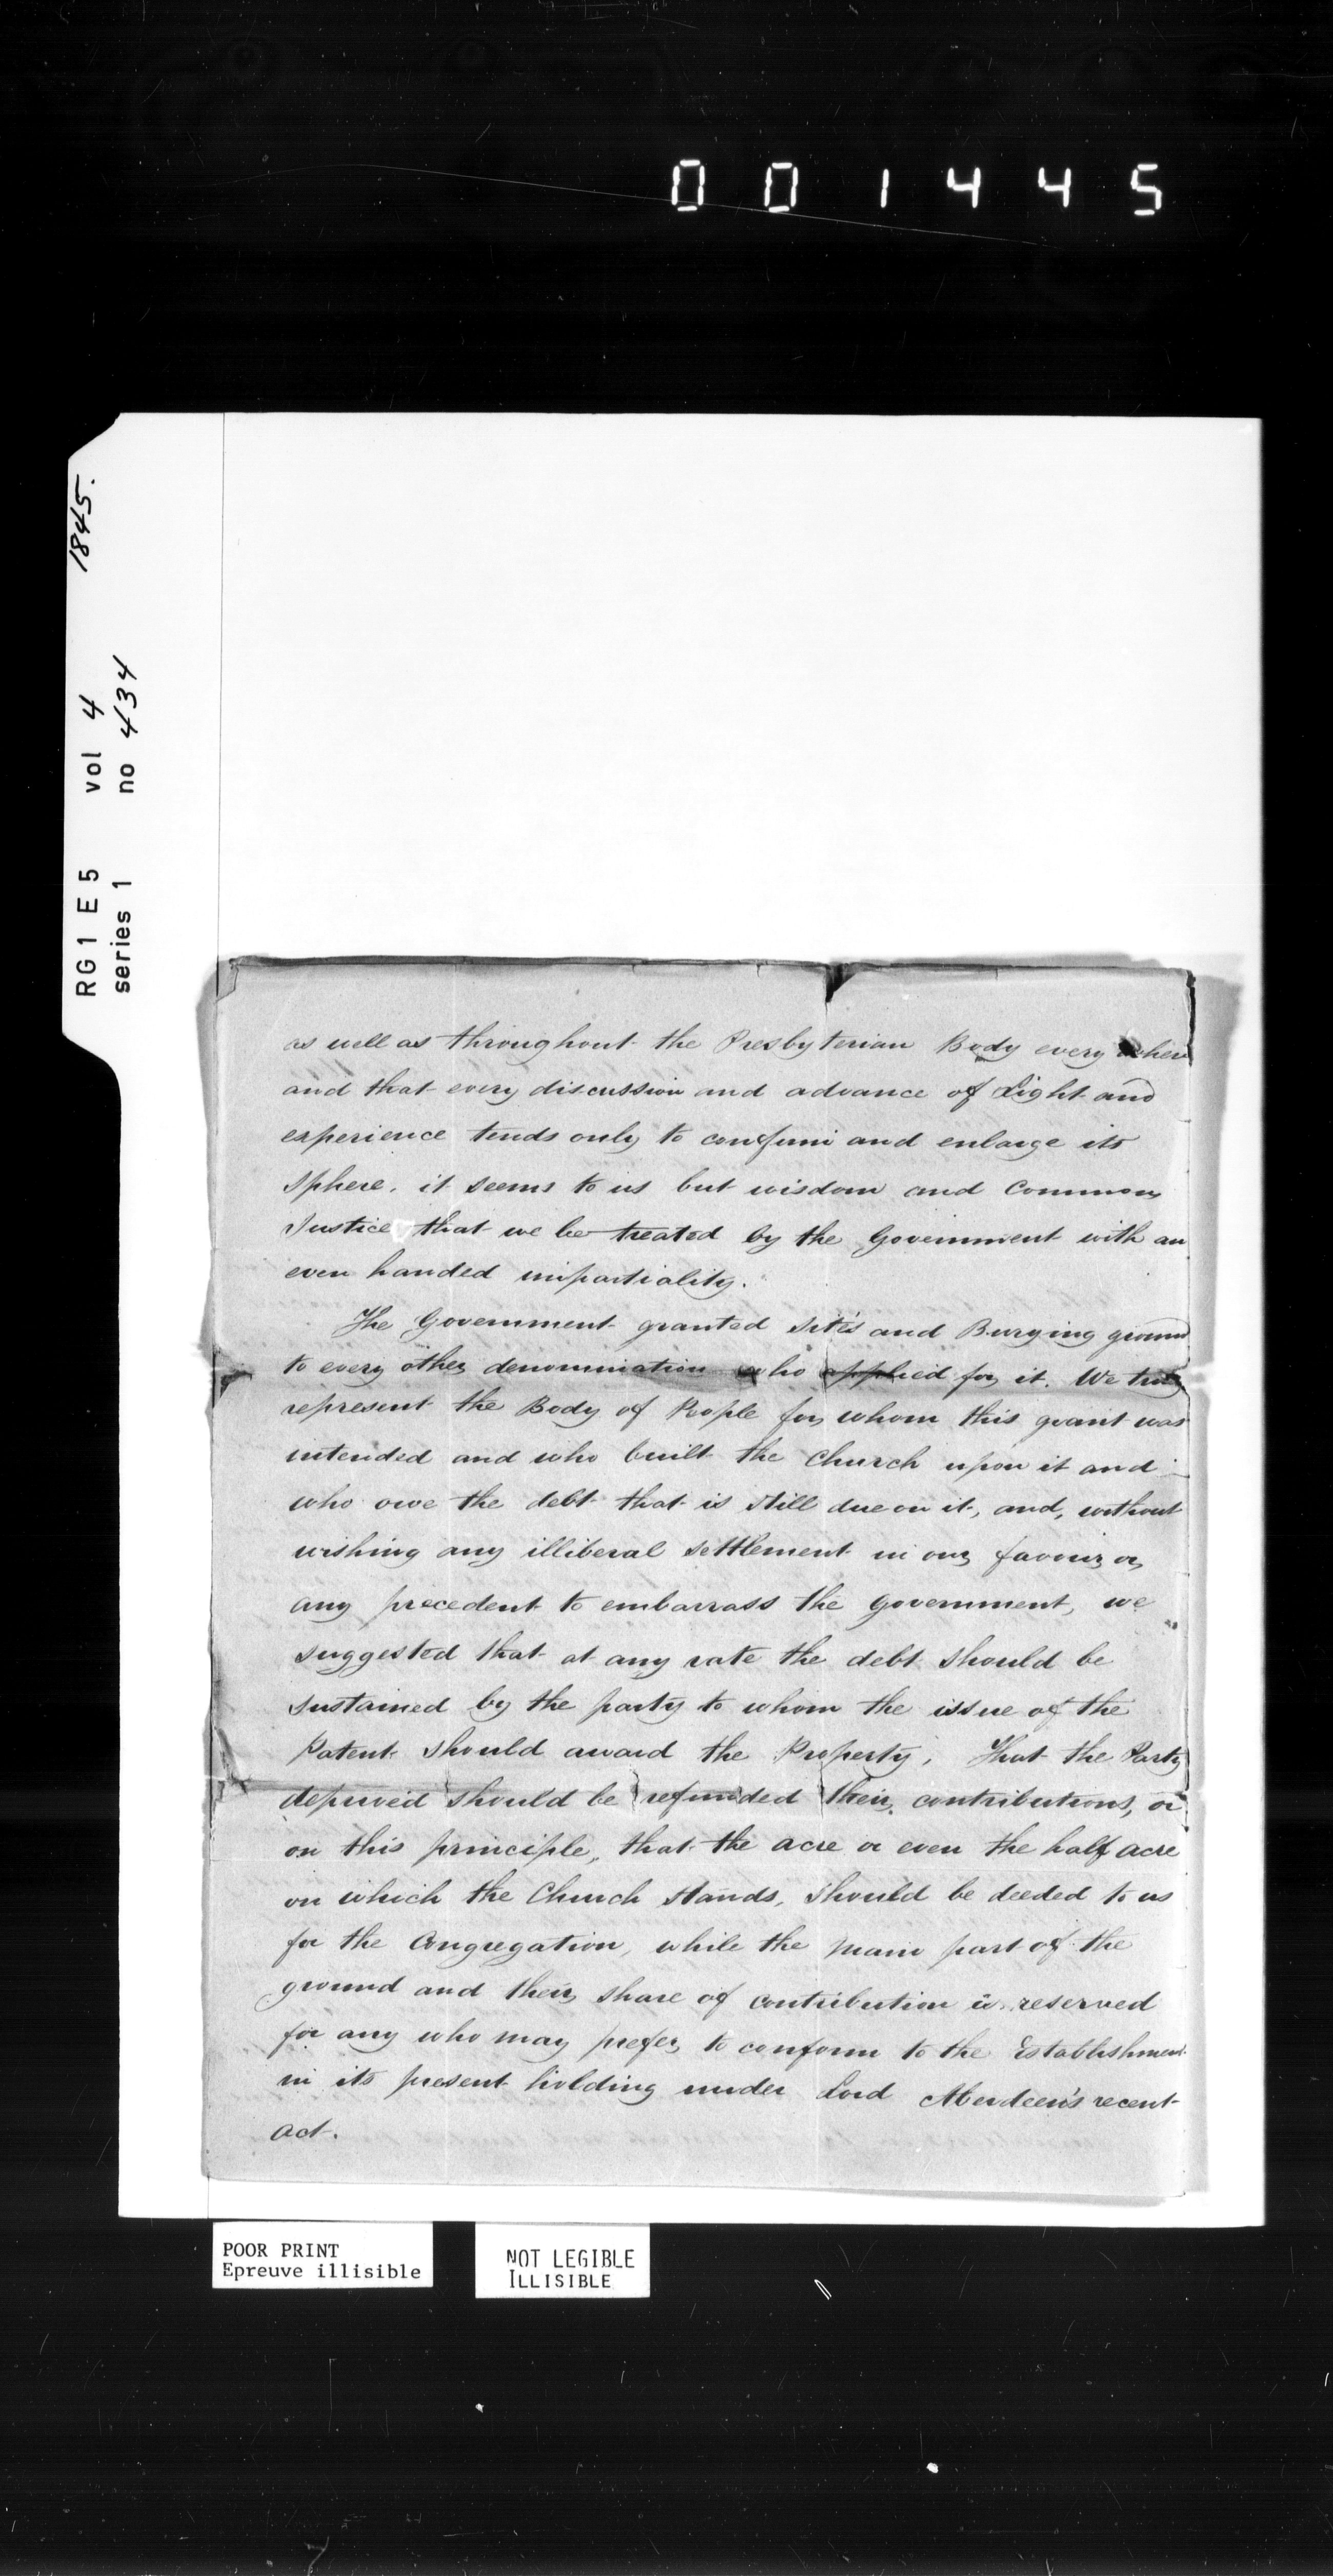 001445
1845.
RG1 E5 vol 4
series 1 no 434
as well as throughout the Presbyterian Body every where
and that every discussion and advance of Light and
experience tends only to confirm and enlarge its
Sphere, it seems to us but wisdom and Common
Justice that we be treated by the Government with an
even handed impartiality.
The Government granted Sites and Burying ground
to every other denomination who applied for it. We truly
represent the Body of People for whom this grant was
intended and who built the Church upon it and
who owe the debt that is still due on it, and, without
wishing any illiberal settlement in our favour or
any precedent to embarrass the Government, we
suggested that at any rate the debt should be
sustained by the party to whom the issue of the
Patent should award the Property, That the Party
deprived should be refunded their contributions, or
on this principle, that the acre or even the half acre
on which the Church stands, should be deeded to us
for the Congregation, while the main part of the
ground and their share of contribution is reserved
for any who may prefer to conform to the Establishment
in its present holding under Lord Aberdeen's recent
act.
POOR PRINT
Epreuve illisible
NOT LEGIBLE
ILLISIBLE